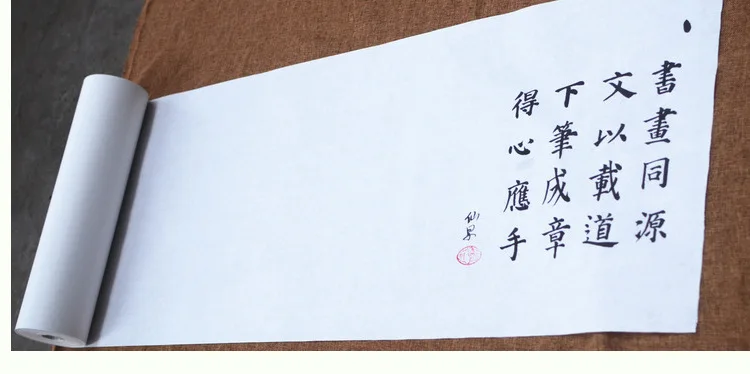 書畫同源
文以載道
下筆成章
得心應手